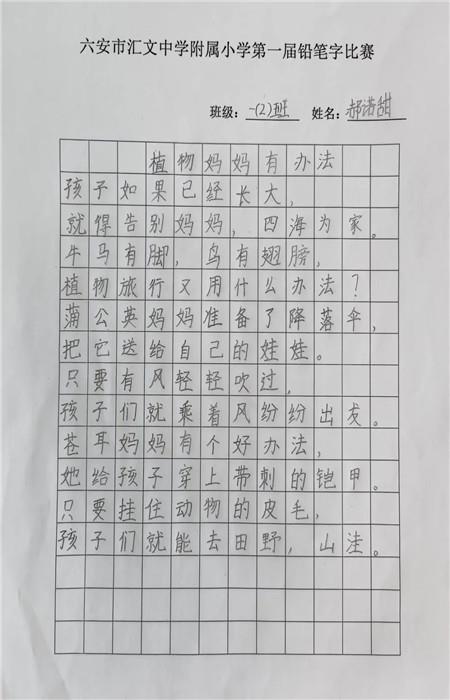 六安市汇文中学附属小学第一届铅笔字比赛
班级：一(2)班 姓名：郝诺甜
植物妈妈有办法
孩子如果已经长大，
就得告别妈妈，四海为家。
牛马有脚，鸟有翅膀，
植物旅行又用什么办法？
蒲公英妈妈准备了降落伞，
把它送给自己的娃娃。
只要有风轻轻吹过，
孩子们就乘着风纷纷出发。
苍耳妈妈有个好办法，
她给孩子穿上带刺的铠甲。
只要挂住动物的皮毛，
孩子们就能去田野，山洼。